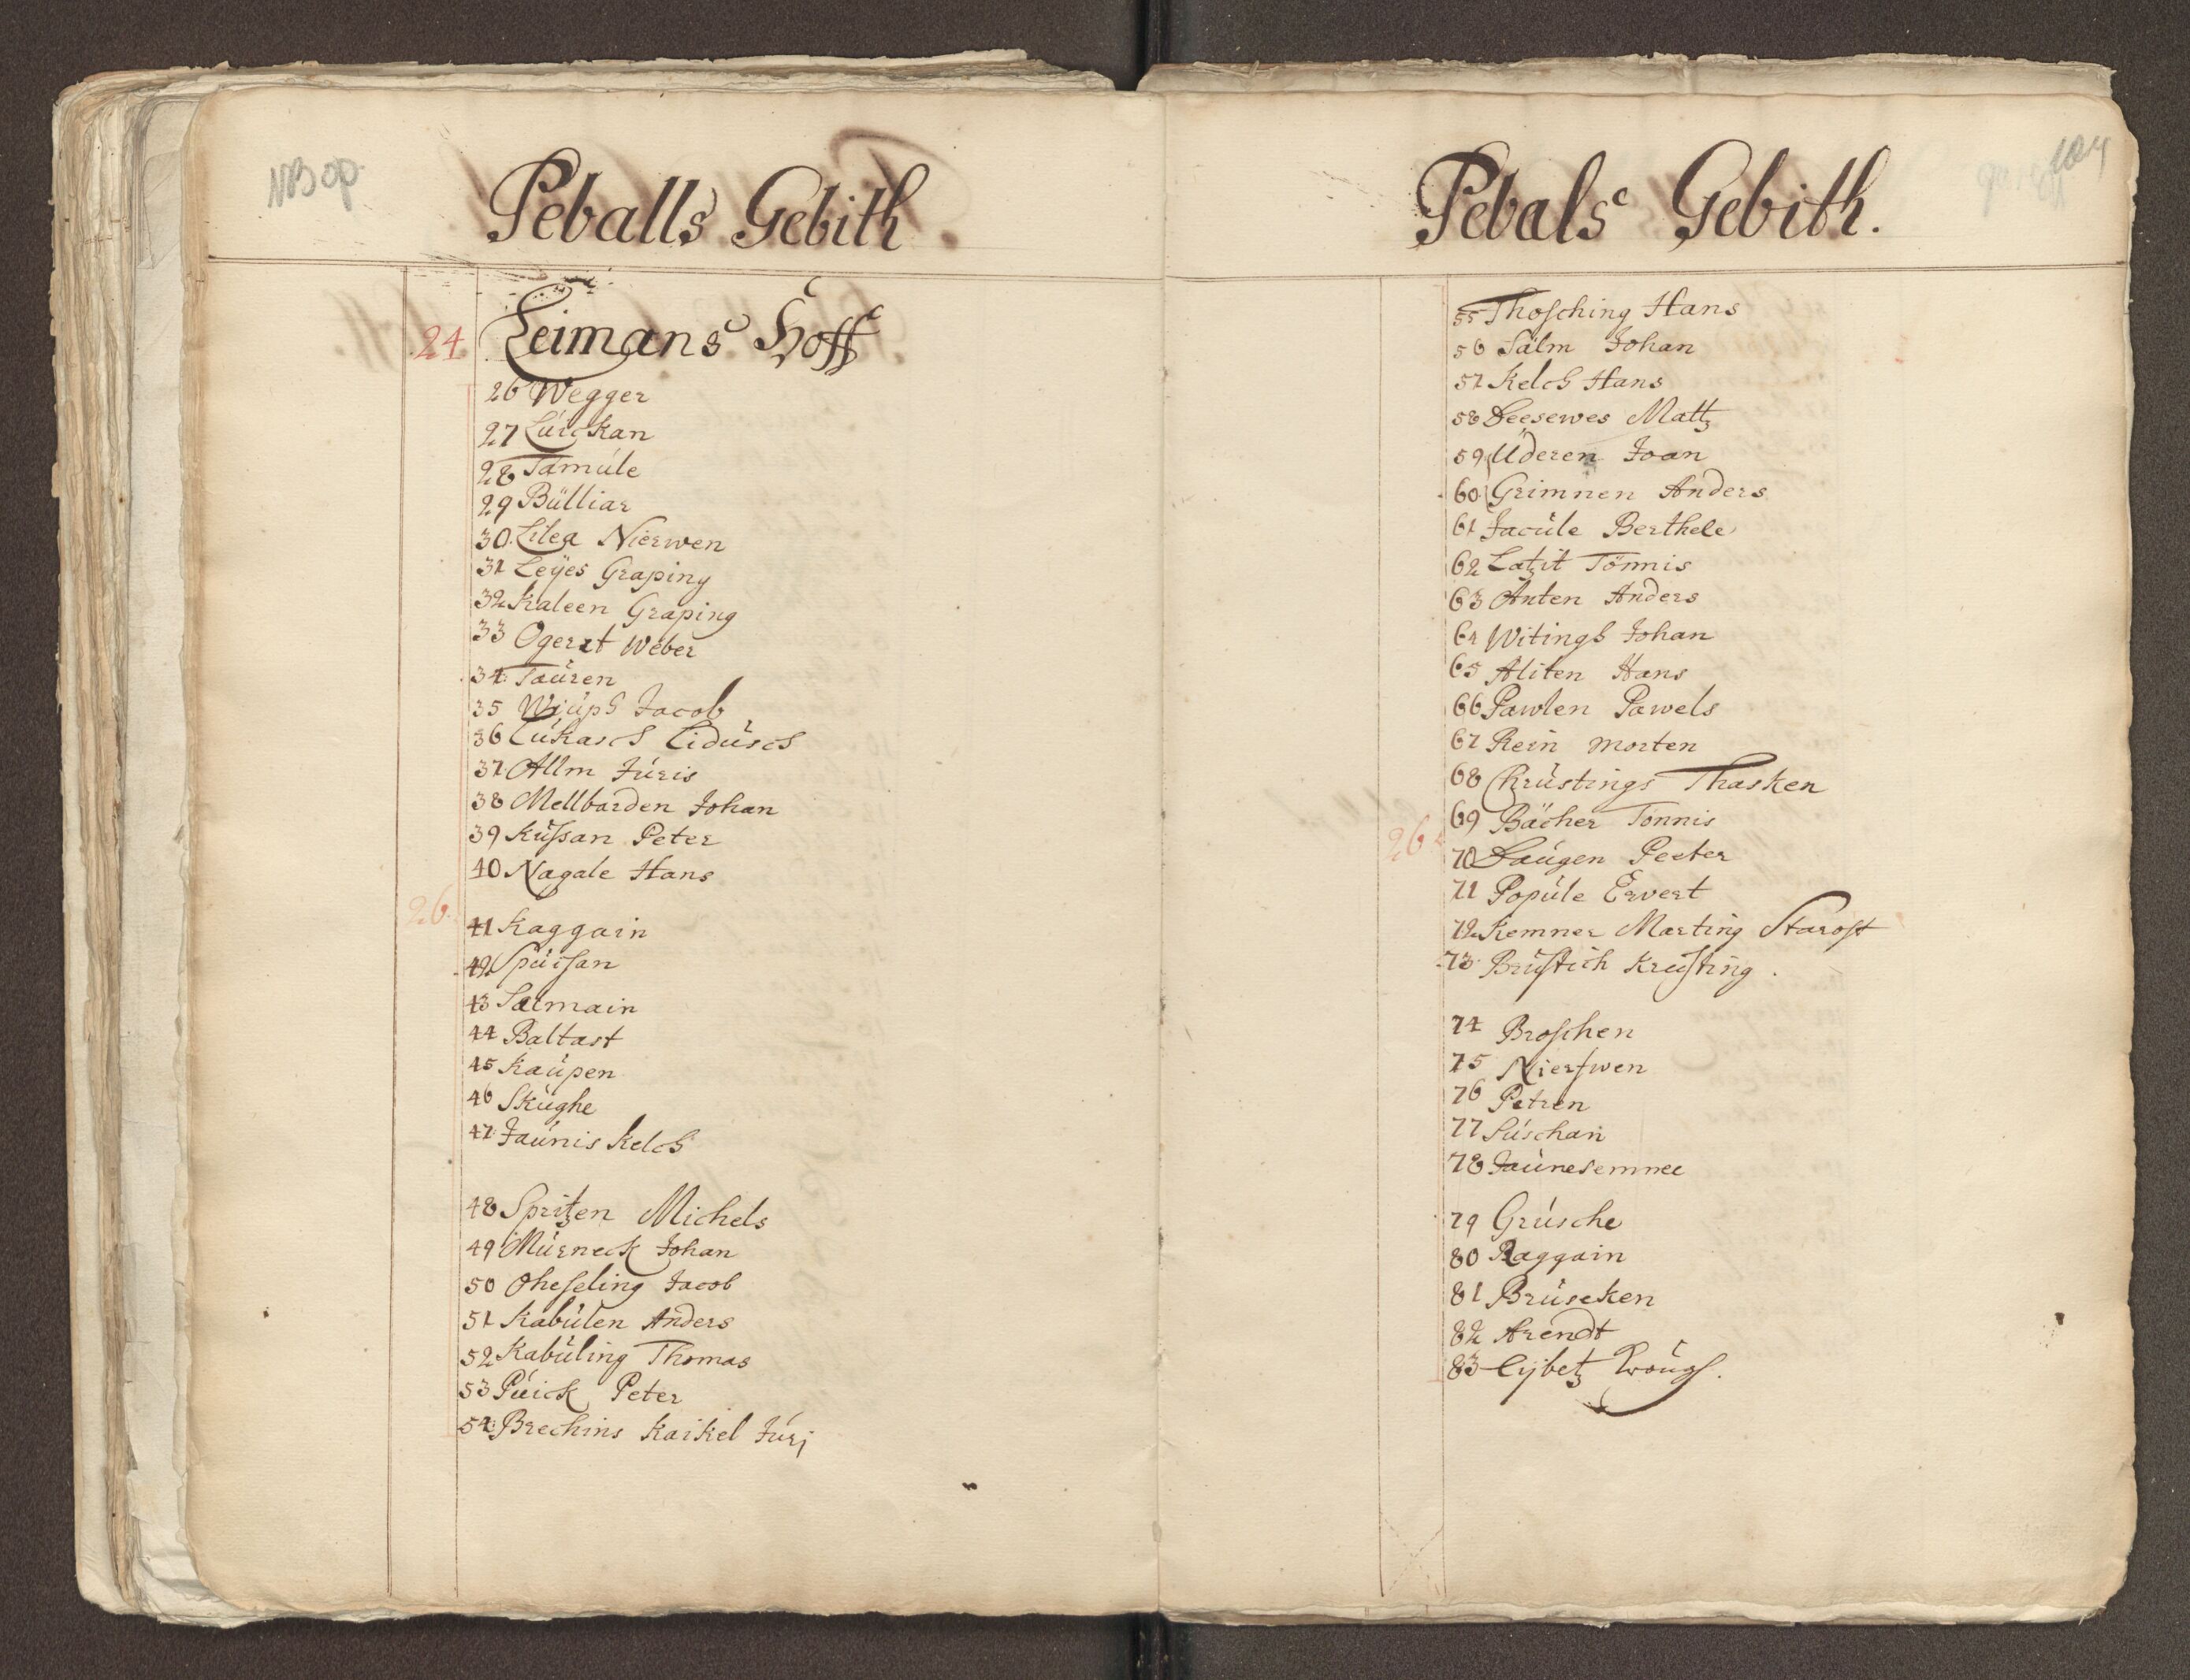 NB op.
Peballs Gebith.
24. Leimans Hoff
26 Wegger
27 Lurckan
28 Tamule
29 Bülliar
30. Lilea Nierwen
31 Leÿes Graping
32 Kaleen Graping
33 Ogerst Weber
34: Tauren
35 Wiups Jacob
36 Lukasch Lidusch
37. Allm Juris
38 Mellbarden Johan
39 Kussan Peter
40 Nagale Hans
26.
41 Kaggain
42. Spuisan
43 Salmain
44 Baltast
45 Kaupen
46 Skughe
47. Jaunis Kelch
48 Spritzen Michels
49 Murneck Johan
50 Oheseling Jacob
51 Kabulen Anders
52 Kabuling Thomas
53 Puick Peter
54: Brechins Kaikel Jurj
Pebals Gebith.
55 Thosching Hans
56 Salm Johan
57 Kelch Hans
58 Leesewes Mattz
59 Uderen Joan
60 Grimnen Anders
61 Jacule Berthele
62 Latzit Tönnis
63 Anten Anders
64 Witings Johan
65 Aliten Hans
66 Pawlen Pawels
67 Rein morten
68 Chrustings Thasken
69 Bächer Tönnis
26.
70 Laugen Peeter
71 Popule Ervert
72. Kemner Marting Starost
73. Brustich Krusting.
74 Broschen
75 Nierswen
76 Petren
77 Suschan
78 Jaunesemnee
79 Grusche
80 Raggain
81 Bruseken
82 Arendt
83 Lijbetz